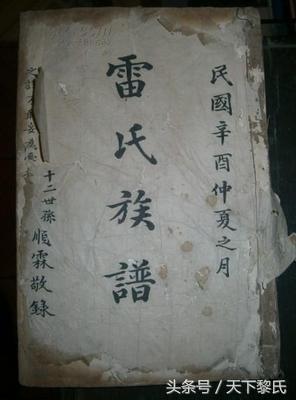 民國辛酉仲夏之月
雷氏族譜
十二世孫順霖敬錄
头条号／天下黎氏